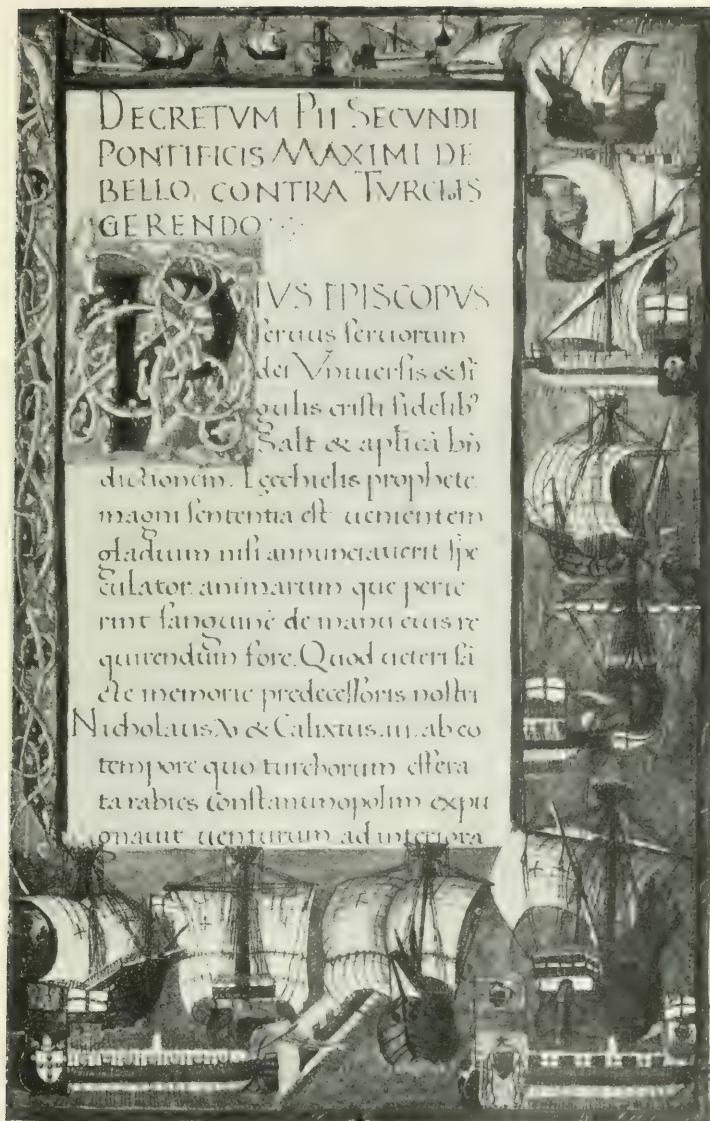 DECRETVM PII SECVNDI
PONTIFICIS MAXIMI DE
BELLO CONTRA TVRCHIS
GERENDO
PIVS EPISCOPVS
seruus seruorum
dei Vniuersis & si
gulis cristi fidelib9
Salt & aplicā bn̄
dictionem. Ezechielis prophete
magni sententia est uenientem
gladium nisi annunciauerit spe
culator animarum que perie
rint sanguinē de manu eius re
quirendum fore. Quod ueteri sā
cte memorie predecessoris nostri
Nicholaus V & Calixtus .iii. ab eo
tempore quo turchorum effera
ta rabies Constantinopolim expu
gnauit uenturum ad interiora